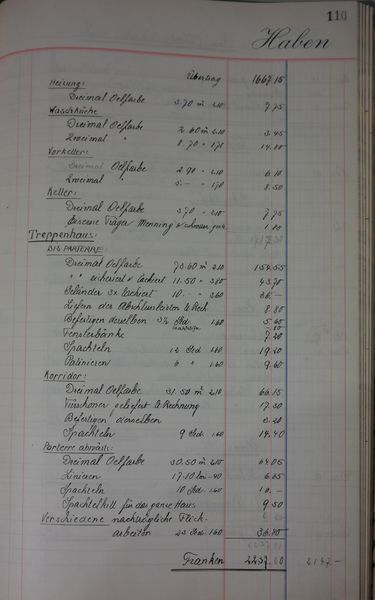 110
Haben
Übertrag 1667.15
Heizung:
Dreimal Oelfarbe 3.70 m² 2.10 7.75
Waschküche
Dreimal Oelfarbe 2.10 3.45
Zweimal " 8.70 " 1.70 14.80
Vorkeller:
Dreimal Oelfarbe 2.90 " 2.10 6.10
Zweimal " 5.— " 1.70 8.50
Keller:
Dreimal Oelfarbe 3.70 " 2.10 7.75
Eiserne Träger Menning 1.80
Treppenhaus:
BIS PARTERRE:
Dreimal Oelfarbe 2.10
" " lackiert 11.50 " 3.80 43.70
Geländer 3x lackiert 10.— " 3.60 36.—
Liefern der Abschlussleisten lt. Rech 8.80
Befestigen derselben 3½ Std. 1.60
Fensterbänke 7.20
Spachteln 12 Std. 1.60 19.20
Patinieren 6 " 1.60 9.60
Korridor:
Dreimal Oelfarbe 31.50 m² 2.10 66.15
Türschoner geliefert lt. Rechnung
Befestigen derselben 3.20
Spachteln 9 Std. 1.60 14.40
Parterre abwärts:
Dreimal Oelfarbe 30.50 m² 2.10 64.05
Linieren 17.10 lm -.40
Spachteln 10 Std. 1.60
Spachtelkitt für das ganze Haus 9.50
Verschiedene nachträgliche Flick-
arbeiten 23 Std. 1.60 36.80
Franken 2237.00